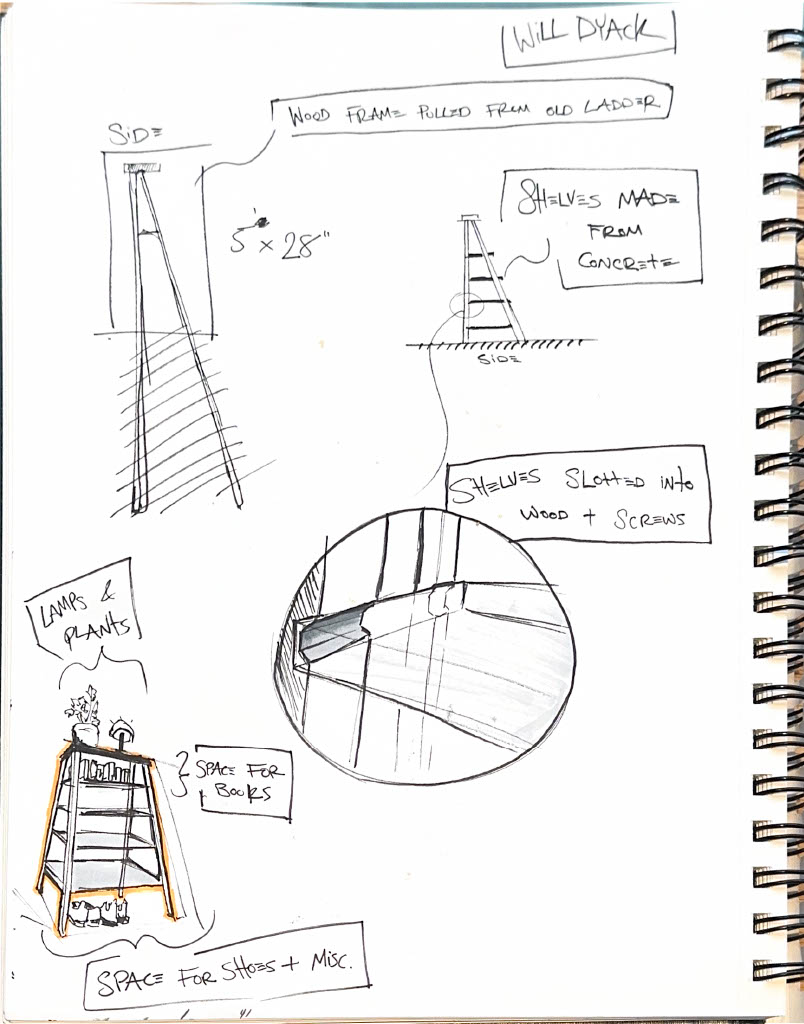 WILL DYACK
WOOD FRAME PULLED FROM OLD LADDER
SIDE
SHELVES MADE
FROM
CONCRETE
5' x 28"
SIDE
SHELVES SLOTTED INTO
WOOD + SCREWS
LAMPS &
PLANTS
SPACE FOR
BOOKS
SPACE FOR SHOES + MISC.